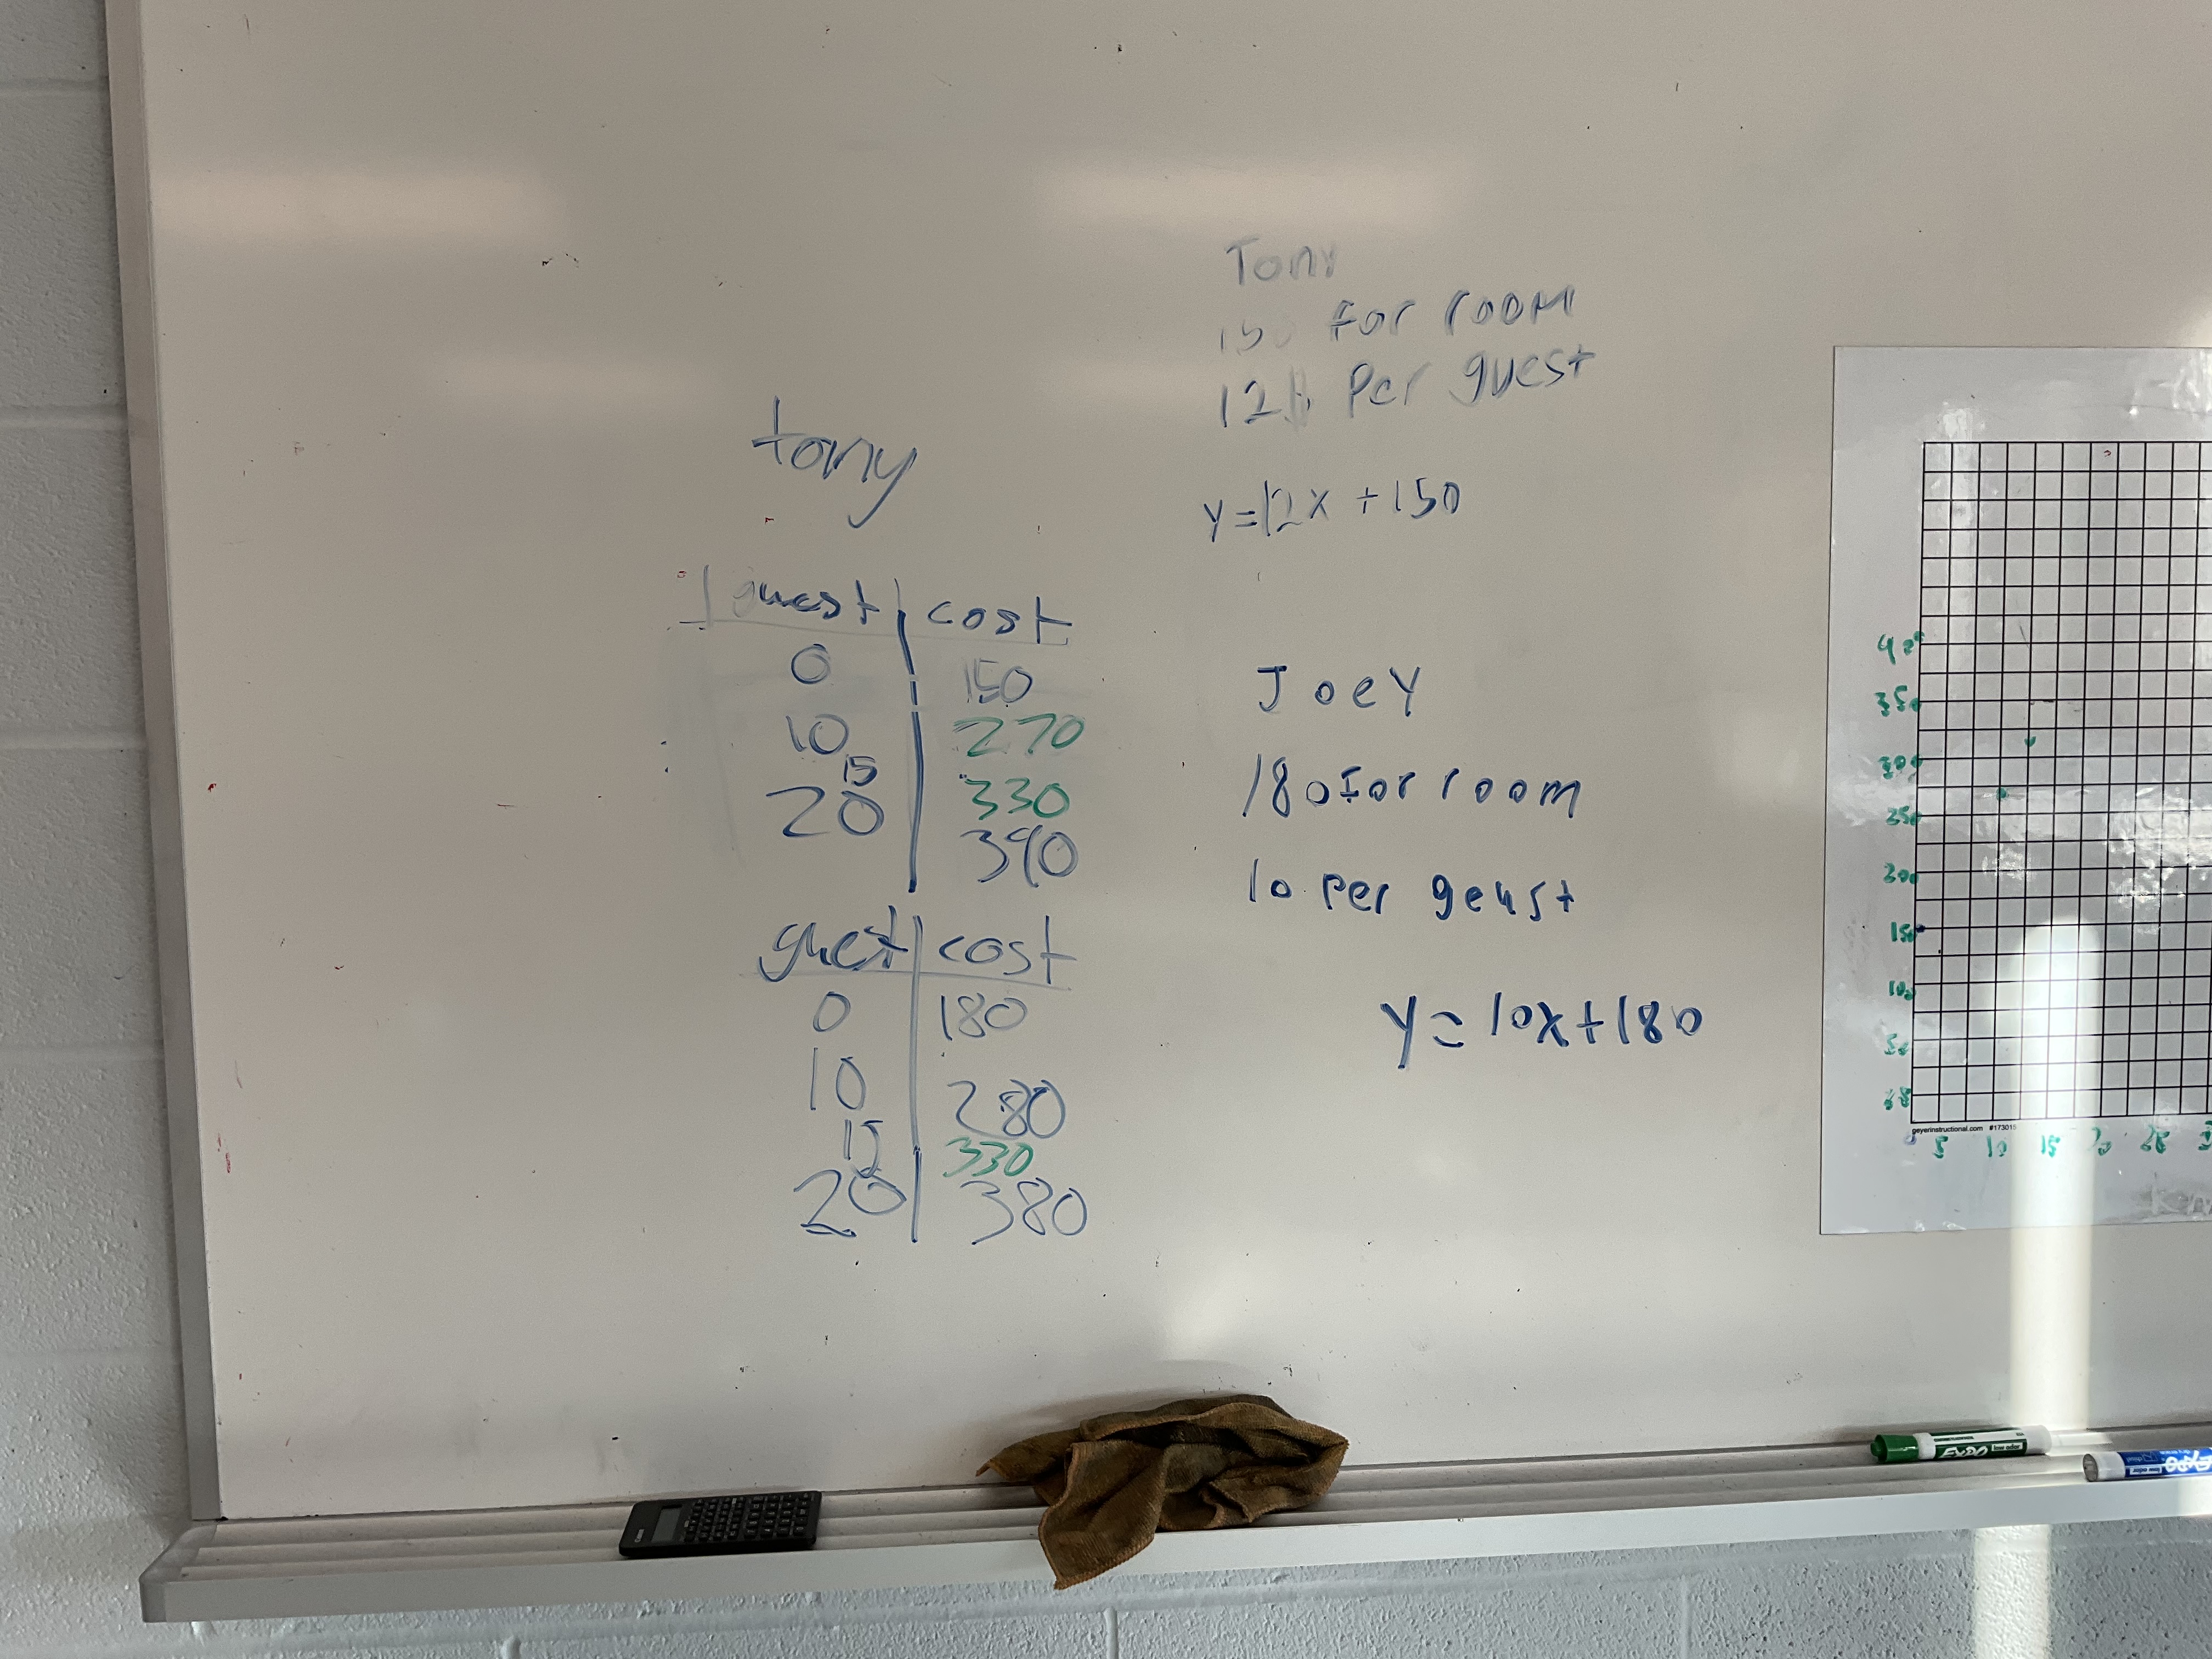 tony
guest cost
0 150
10 270
15 330
20 390
guest cost
0 180
10 280
15 330
20 380
Tony
150 for room
12 Per guest
y=12x+150
Joey
180 for room
10 Per geust
y=10x+180
350
150
100
50
geyerinstructional.com #173015
5 10 15 20 25
EXPO low odor
EXPO